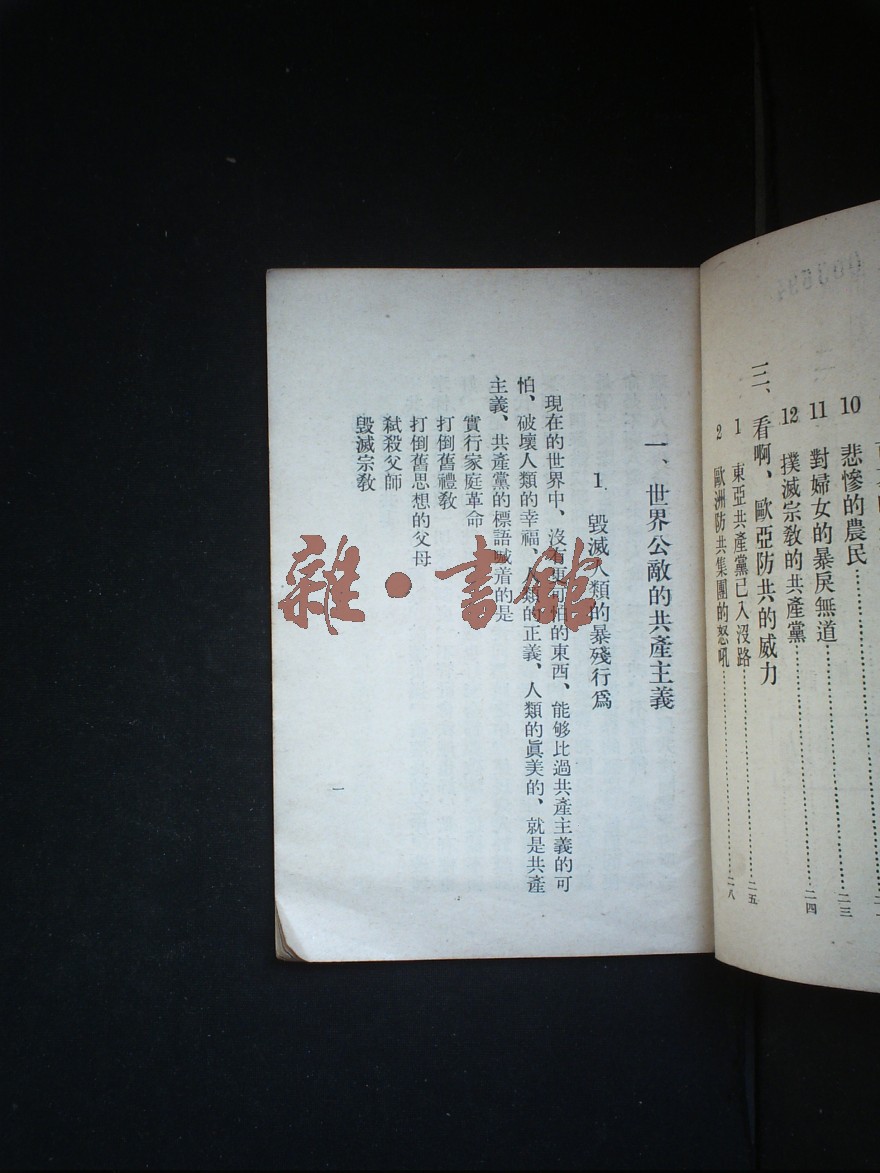 10 悲慘的農民……………………二三
11 對婦女的暴戾無道……………二四
12 撲滅宗教的共產黨
三、看啊、歐亞防共的威力
1 東亞共產黨已入沒路……………二五
2 歐洲防共集團的怒吼……………二八
一、世界公敵的共產主義
1. 毀滅人類的暴殘行爲
現在的世界中、沒有更可怕的東西、能够比過共產主義的可
怕、破壞人類的幸福、人類的正義、人類的眞美的、就是共產
主義、共產黨的標語喊着的是
實行家庭革命
打倒舊禮教
打倒舊思想的父母
弑殺父師
毀滅宗教
一
雜·書館